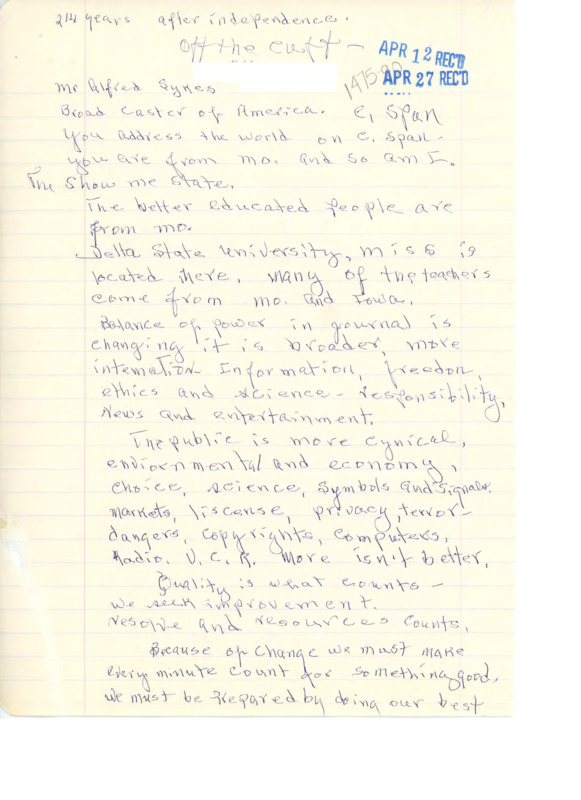 214 years after independence.
Off the cuff -
APR 12 REC'D
APR 27 REC'D
Mr Alfred Sykes
Broad Caster of America. C, Span
You address the world on C. Span -
you are from mo. and so am I.
The Show me State.
The better educated people are
from mo.
Delta State University, miss is
located here, many of the teachers
come from mo. and Iowa.
Balance of power in journal is
changing it is broader, more
internation Information, freedon,
ethics and science - responsibility,
News and entertainment.
The public is more cynical,
enviornmental and economy,
choice, science, Symbols and Signals,
markets, liscense, privacy, terror-
dangers, copyrights, computers,
Radio. V.C.R. More isn't better,
Quality is what counts -
we seek improvement.
resolve and resources counts,
Because of change we must make
every minute count for something good,
we must be prepared by doing our best